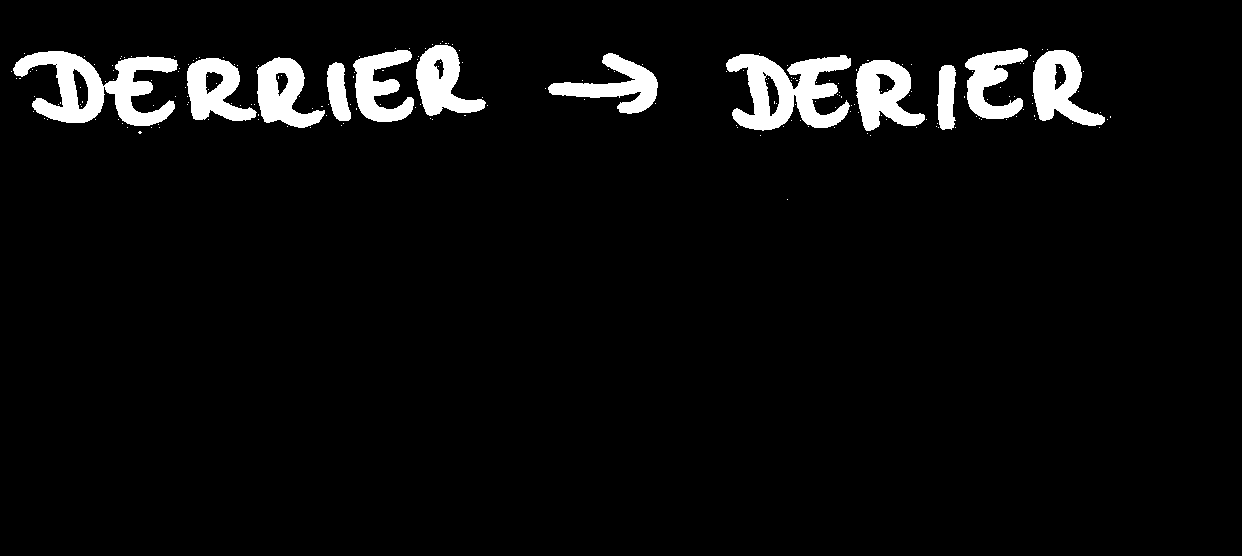 DERRIER → DERIER